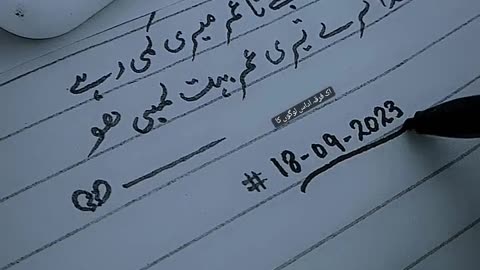 تا عمر میری کمی رہے
کرے تیری عمر بہت لمبی ھو
اک فرقہ اداس لوگوں کا
# 18-09-2023